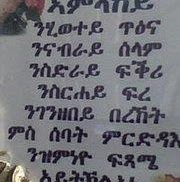 አምላከይ
ንሂወተይ ጥዕና
ንናብራይ ሰላም
ንስድራይ ፍቕሪ
ንስርሐይ ፍረ
ንገንዘበይ በረኸት
ምስ ሰባት ምርድዳእ
ንዝምነዮ ፍጻሜ